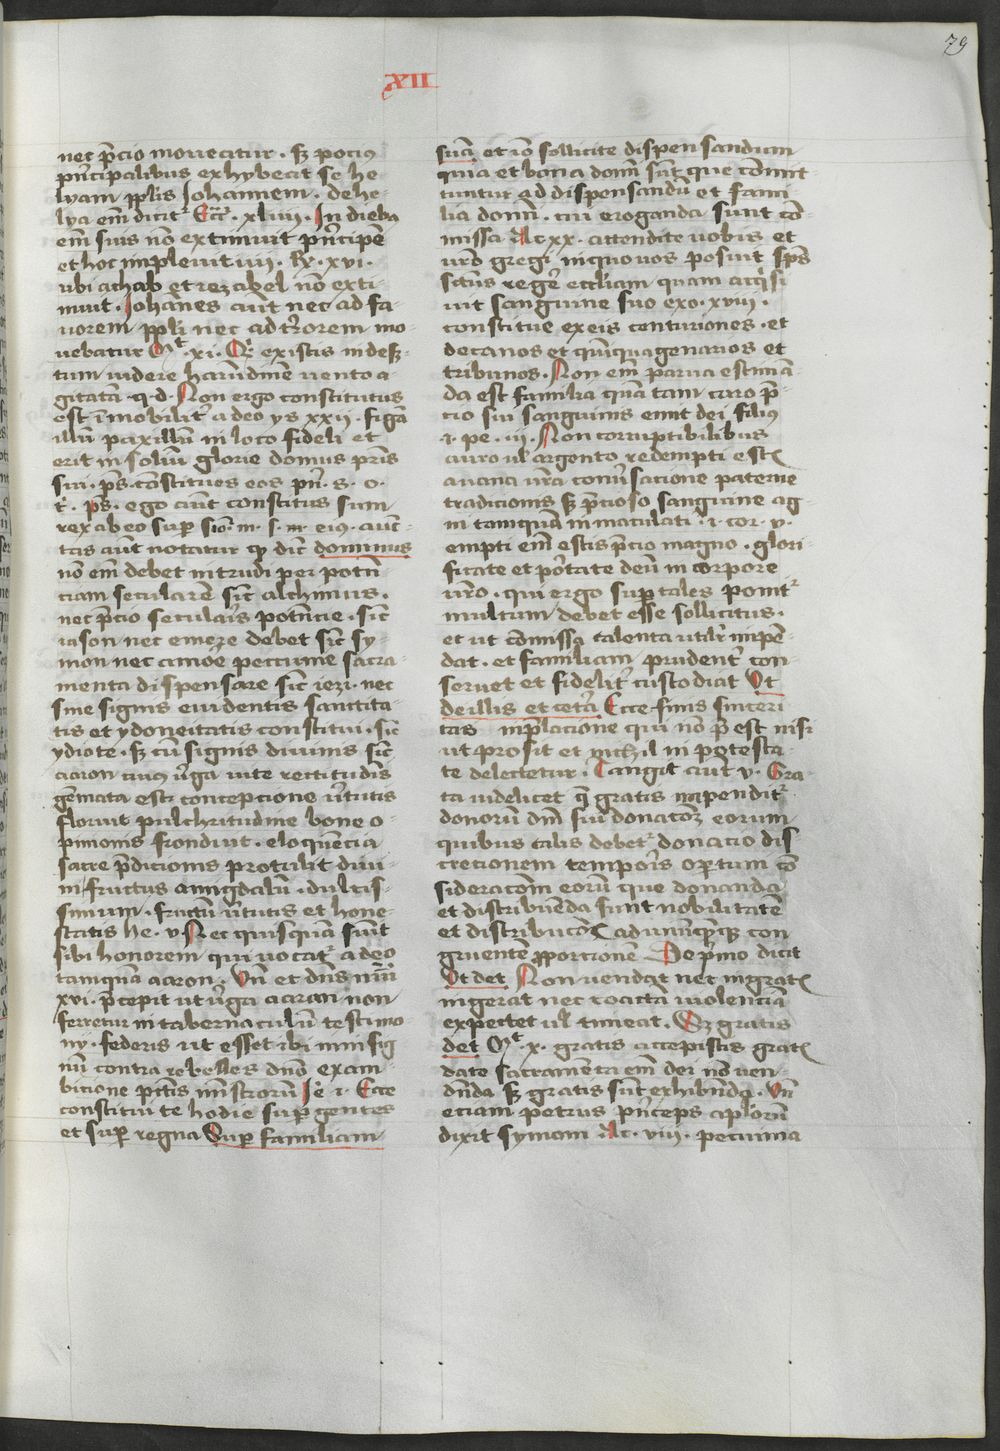 79
XII
nec p̄cio mouecatur . sꝫ pociꝰ
pͥncipalibus exhybeat se he
lyam pplīs Johannem . de he-
lya em̄ dicit᷑ Ecc͛ . xlviij . In dieb⁊
em̄ suis nō extimuit pͥncipē
et hoc impleuit iiij . Rꝫ . xvi .
ubi achab et iezabel nō exti
muit . Johānes aūt nec ad fa-
uorem ppli nec ad t͛rorem mo-
uebatur Mᵗ . xi . Qͥ existis in deſ-
tum videre harūdinē vento a-
gitatā . q . d . Non ergo constitutus
est īmobilit͛ a deo ys xxij . figā
illū paxillū in loco fideli et
erit in soliū glorie domus pr̄is
sui . ps̄ . cōstitues eos pͥn . s . o .
t͛ . ps̄ . ego aūt constitus sum
rex ab eo suꝑ sio . m . s . m eiꝰ . auc-
tas aūt notatur qꝫ dic̄ dominus
nō em̄ debet intrudi per potn̄
ciam secularē sic̄ alchimus .
nec p̄cio seculaīs potn̄cie . sic̄
iason nec emere debet sic̄ sy-
mon nec amōe peccunie sacra-
menta dispensare sic̄ iezi . nec
sine signis euidentis sanctita-
tis et ydoneitatis constitui . sic̄
ydiote . sꝫ cū signis diuinis sic̄
aaron cuius v͛ga vite rectitudīs
gēmata est concepcione v͛tutis
floruit pulchritudine bone o-
pinionis fronduit . eloquēcia
sacre p̄dicionis protulit diui-
ni fructus amigdalū . dulcis-
simum . fructū v͛tutis et hone-
statis he . v . Nec quisquā sūit
sibi honorem qui vocat᷑ a deo
tamquā aaron . Vn̄ et dn̄s nūi
xvi . p̄cepit ut v͛ga aaran non
ferretur in tabernaculū testimo-
ny . federis ut esset ibi in insig
nū contra rebelles dn̄o exam-
bicione pn̄tis mīstrorū Je᷑ i . Ecce
constitui te hodie suꝑ gentes
et suꝑ regna Suꝑ familiam
suā et iō sollicite dispensandum
quia et bona dom̄ sūt que cōmit-
tuntur ad dispensandū et fami-
lia domī . cui eroganda sunt cō
missa Ac xx . attendite uobis et
vn̄o gregi in quo uos posuit sp̄s
sctūs regē eccl̄iam quam acqͥsi
uit sanguine suo exo . xviij .
constitue ex eis centuriones . et
decanos et qūiquagenarios et
tribunos . Non em̄ parua estimā-
da est familia quā tam caro p̄-
cio sui sanguinis emit dei filius
i . pe . iij . Non corruptibilibus
auro ul̄ argento redempti estꝭ
a uana vr̄a conu͛sacione paterne
tradicionis sꝫ p̄cioso sanguine ag-
ni tamquā inmaculati . i . cor . v .
empti em̄ estis p̄cio magno . glori-
ficate et portate deū in corpore
vr̄o . qui ergo suꝑ tales ponit᷑
multum debet esse sollicitus .
et ut cōmissa talenta utilit͛ impē-
dat . et familiam prudent͛ con-
seruet et fidelit͛ custodiat Ut
de illis et cet͛a Ecce finis sinceri
tas inp̄lacione qui nō p̄est nisi
ut prosit et nichil in potesta-
te delectetur . Tangit aūt v . Gra
ta videlicet qꝫ gratis inpendit᷑
donorū dm̄ sui donacōꝫ eorum
quibus talis debet᷑ donacio dis
crecionem tempoīs oꝑtum cō
sideracōm eorū que donanda
et distribuēda sunt nobilitatē
et distribucōꝭ ad unūqꝫqꝫ con
gruentē ꝓporcionē De pͥmo dicit
Ut det Non vendat nec ingratꝭ
ingerat nec coacta violenciā
expectet ul̄ timeat . Sꝫ gratis
det Mᵗ . x . gratis accepistis gratꝭ
date sacramēta em̄ dei nō ven-
dn̄da sꝫ gratis sūt exhibn̄da . Vn̄
eciam petrus pͥnceps apl̄orū
dixit symoni Ac . viij . peccunia